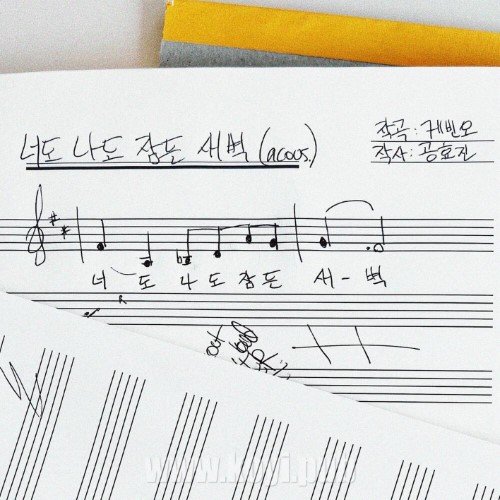 너도 나도 잠든 새벽 (acous.)
작곡 : 케빈오
작사 : 공효진
너 도 나 도 잠 든 새 - 벽